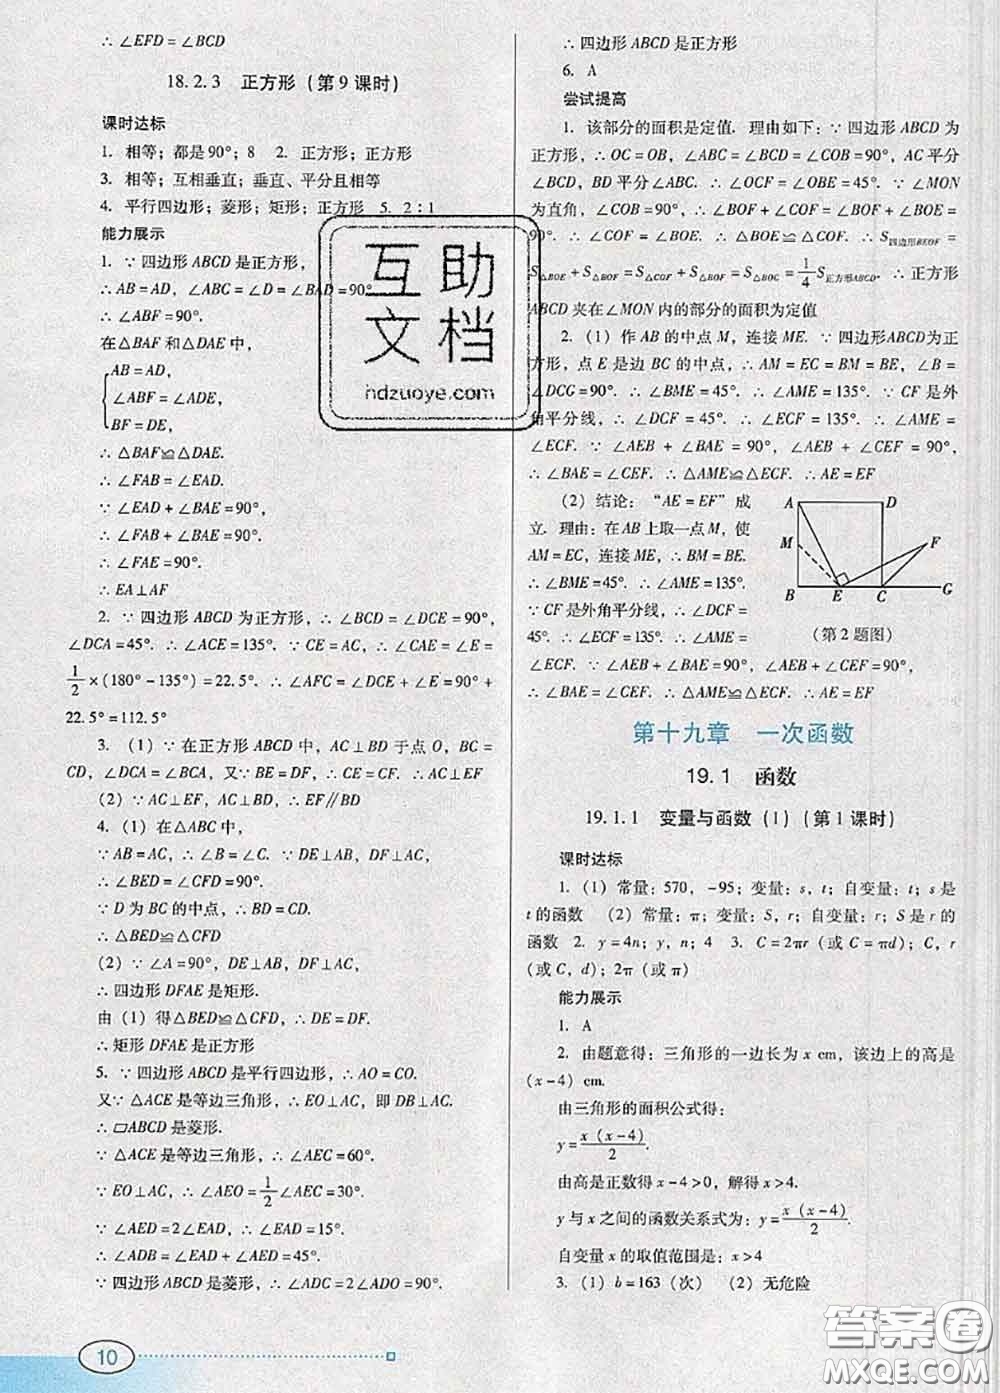 ∴ ∠EFD = ∠BCD
18.2.3 正方形（第9课时）
课时达标
1. 相等；都是90°；8 2. 正方形；正方形
3. 相等；互相垂直；垂直、平分且相等
4. 平行四边形；菱形；矩形；正方形 5. 2∶1
能力展示
1. ∵ 四边形 ABCD 是正方形，
∴ AB = AD，∠ABC = ∠D = ∠BAD = 90°
∴ ∠ABF = 90°.
在△BAF 和△DAE 中，
AB = AD，
∠ABF = ∠ADE，
BF = DE，
∴ △BAF≌△DAE.
∴ ∠FAB = ∠EAD.
∵ ∠EAD + ∠BAE = 90°，
∴ ∠FAB + ∠BAE = 90°.
∴ ∠FAE = 90°.
∴ EA⊥AF
2. ∵ 四边形 ABCD 为正方形，∴ ∠BCD = ∠DCE = 90°，
∠DCA = 45°. ∴ ∠ACE = 135°. ∵ CE = AC，∴ ∠CAE = ∠E =
1/2 ×（180° − 135°）= 22.5°. ∴ ∠AFC = ∠DCE + ∠E = 90° +
22.5° = 112.5°
3. （1）∵ 在正方形 ABCD 中，AC⊥BD 于点 O，BC =
CD，∴ ∠DCA = ∠BCA，又∵ BE = DF，∴ CE = CF. ∴ AC⊥EF
（2）∵ AC⊥EF，AC⊥BD，∴ EF∥BD
4. （1）在△ABC 中，
∵ AB = AC，∴ ∠B = ∠C. ∵ DE⊥AB，DF⊥AC，
∴ ∠BED = ∠CFD = 90°.
∵ D 为 BC 的中点，∴ BD = CD.
∴ △BED≌△CFD
（2）∵ ∠A = 90°，DE⊥AB，DF⊥AC，
∴ 四边形 DFAE 是矩形.
由（1）得△BED≌△CFD，∴ DE = DF.
∴ 矩形 DFAE 是正方形
5. ∵ 四边形 ABCD 是平行四边形，∴ AO = CO.
又∵ △ACE 是等边三角形，∴ EO⊥AC，即 DB⊥AC.
∴ ▱ABCD 是菱形.
∵ △ACE 是等边三角形，∴ ∠AEC = 60°.
∵ EO⊥AC，∴ ∠AEO = 1/2 ∠AEC = 30°.
∵ ∠AED = 2∠EAD，∴ ∠EAD = 15°.
∴ ∠ADB = ∠EAD + ∠AED = 45°.
∵ 四边形 ABCD 是菱形，∴ ∠ADC = 2∠ADO = 90°.
10
∴ 四边形 ABCD 是正方形
6. A
尝试提高
1. 该部分的面积是定值. 理由如下：∵ 四边形 ABCD 为
正方形，∴ OC = OB，∠ABC = ∠BCD = ∠COB = 90°，AC 平分
∠BCD，BD 平分∠ABC. ∴ ∠OCF = ∠OBE = 45°. ∵ ∠MON
为直角，∠COB = 90°，∴ ∠BOF + ∠COF = ∠BOF + ∠BOE =
90°. ∴ ∠COF = ∠BOE. ∴ △BOE≌△COF. ∴ S四边形BEOF =
S△BOE + S△BOF = S△COF + S△BOF = S△BOC = 1/4 S正方形ABCD. ∴ 正方形
ABCD 夹在∠MON 内的部分的面积为定值
2. （1）作 AB 的中点 M，连接 ME. ∵ 四边形ABCD为正
方形，点 E 是边 BC 的中点，∴ AM = EC = BM = BE，∠B =
∠DCG = 90°. ∴ ∠BME = 45°. ∴ ∠AME = 135°. ∵ CF 是外
角平分线，∴ ∠DCF = 45°. ∴ ∠ECF = 135°. ∴ ∠AME =
∠ECF. ∵ ∠AEB + ∠BAE = 90°，∠AEB + ∠CEF = 90°，
∴ ∠BAE = ∠CEF. ∴ △AME≌△ECF. ∴ AE = EF
（2）结论：“AE = EF”成
立. 理由：在 AB 上取一点 M，使
AM = EC，连接 ME，∴ BM = BE.
∴ ∠BME = 45°. ∴ ∠AME = 135°.
∵ CF 是外角平分线，∴ ∠DCF =
45°. ∴ ∠ECF = 135°. ∴ ∠AME =
∠ECF. ∵ ∠AEB + ∠BAE = 90°，∠AEB + ∠CEF = 90°，
∴ ∠BAE = ∠CEF. ∴ △AME≌△ECF. ∴ AE = EF
A D
M F
B E C G
（第2题图）
第十九章 一次函数
19.1 函数
19.1.1 变量与函数（1）（第1课时）
课时达标
1. （1）常量：570，−95；变量：s，t；自变量：t；s 是
t 的函数 （2）常量：π；变量：S，r；自变量：r；S 是 r 的
函数 2. y = 4n；y，n；4 3. C = 2πr（或 C = πd）；C，r
（或 C，d）；2π（或 π）
能力展示
1. A
2. 由题意得：三角形的一边长为 x cm，该边上的高是
（x − 4）cm.
由三角形的面积公式得：
y = x（x − 4）/2.
由高是正数得 x − 4 > 0，解得 x > 4.
y 与 x 之间的函数关系式为：y = x（x − 4）/2.
自变量 x 的取值范围是：x > 4
3. （1）b = 163（次） （2）无危险
互助
文档
hdzuoye.com
答案圈
MXQE.COM